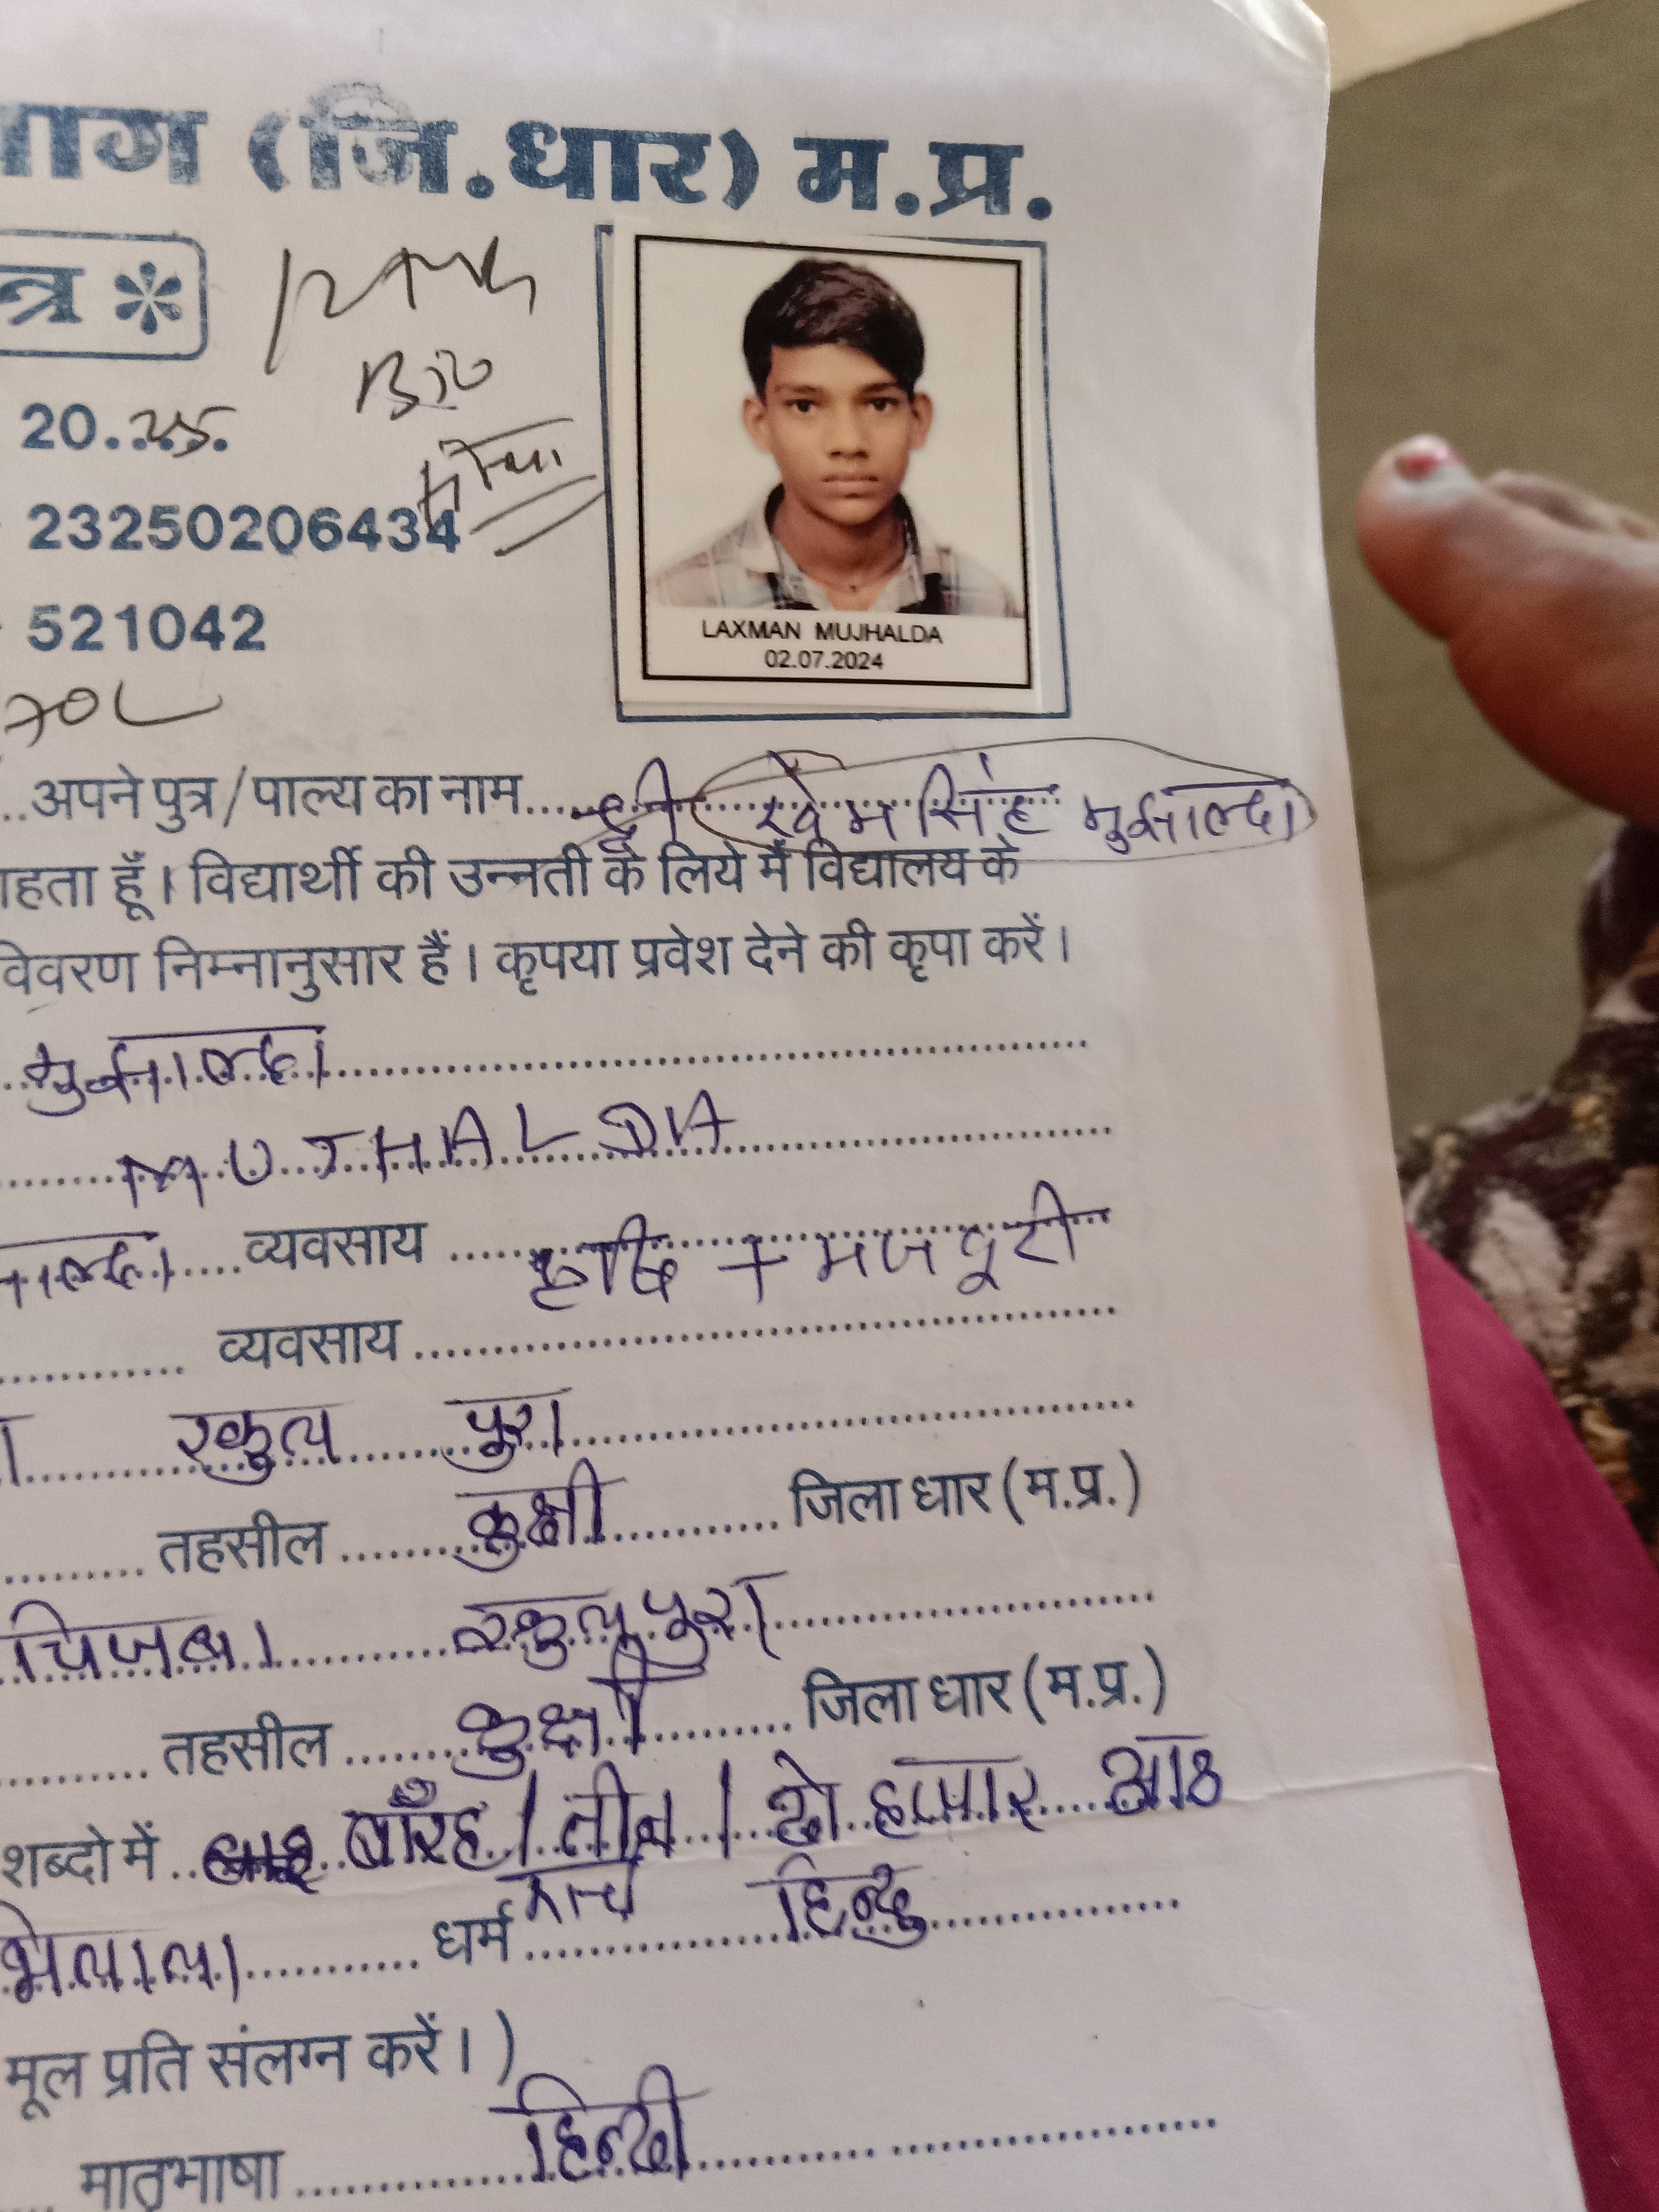 बाग (जि.धार) म.प्र.
त्र *
20..25.
Bio
23250206434
521042
LAXMAN MUJHALDA
02.07.2024
..अपने पुत्र/पाल्य का नाम.....श्री खेमसिंह मुझाल्दा
हता हूँ। विद्यार्थी की उन्नती के लिये मैं विद्यालय के
विवरण निम्नानुसार हैं। कृपया प्रवेश देने की कृपा करें।
मुझाल्दा
MUJHALDA
ाल्दा व्यवसाय कृषि + मजदूरी
व्यवसाय
स्कुल पुरा
तहसील कुक्षी जिला धार (म.प्र.)
स्कुल पुरा
तहसील कुक्षी जिला धार (म.प्र.)
शब्दो में बाँरह / तीन / दो हजार आठ
मार्च
भिलाला धर्म हिन्दु
मूल प्रति संलग्न करें।)
मातृभाषा हिन्दी